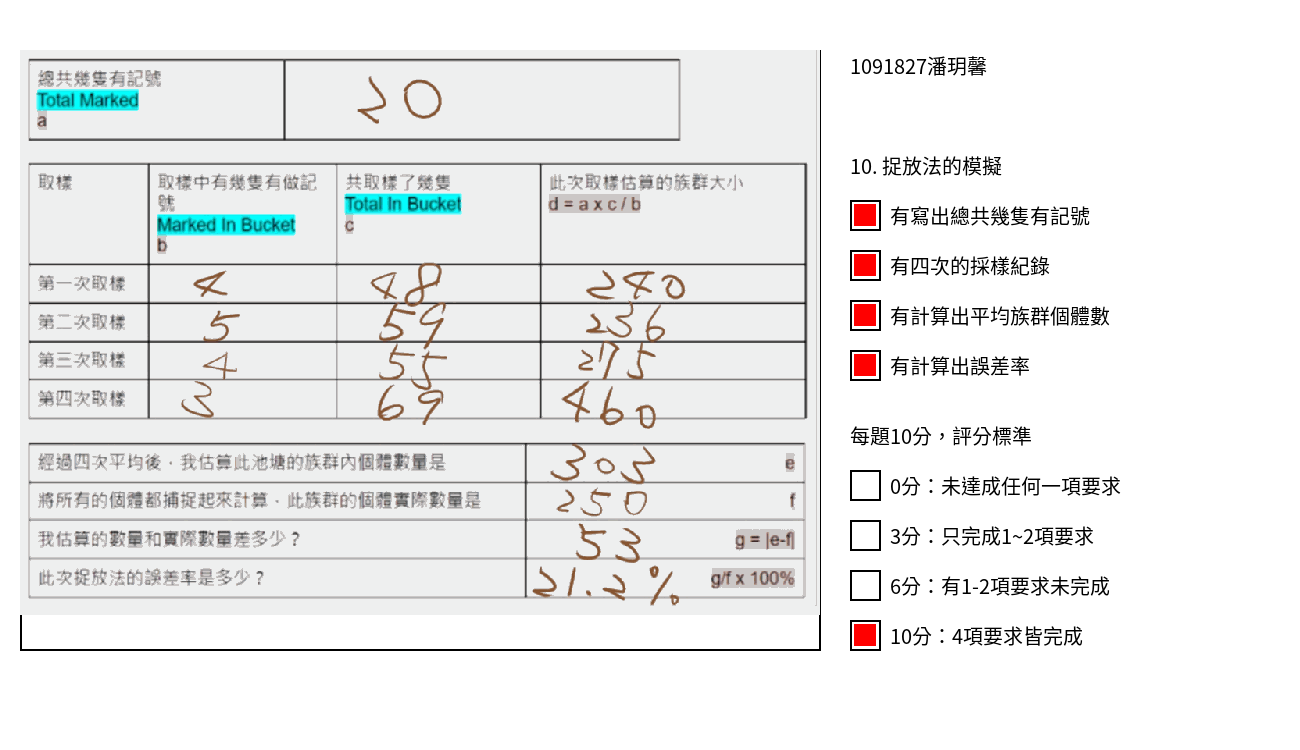 總共幾隻有記號
Total Marked
a
20
取樣
取樣中有幾隻有做記
號
Marked In Bucket
b
共取樣了幾隻
Total In Bucket
c
此次取樣估算的族群大小
d = a x c / b
第一次取樣 4 48 240
第二次取樣 5 59 236
第三次取樣 4 55 275
第四次取樣 3 69 460
經過四次平均後，我估算此池塘的族群內個體數量是 303 e
將所有的個體都捕捉起來計算，此族群的個體實際數量是 250 f
我估算的數量和實際數量差多少？ 53 g = |e-f|
此次捉放法的誤差率是多少？ 21.2% g/f x 100%
1091827潘玥馨
10. 捉放法的模擬
有寫出總共幾隻有記號
有四次的採樣紀錄
有計算出平均族群個體數
有計算出誤差率
每題10分，評分標準
0分：未達成任何一項要求
3分：只完成1~2項要求
6分：有1-2項要求未完成
10分：4項要求皆完成